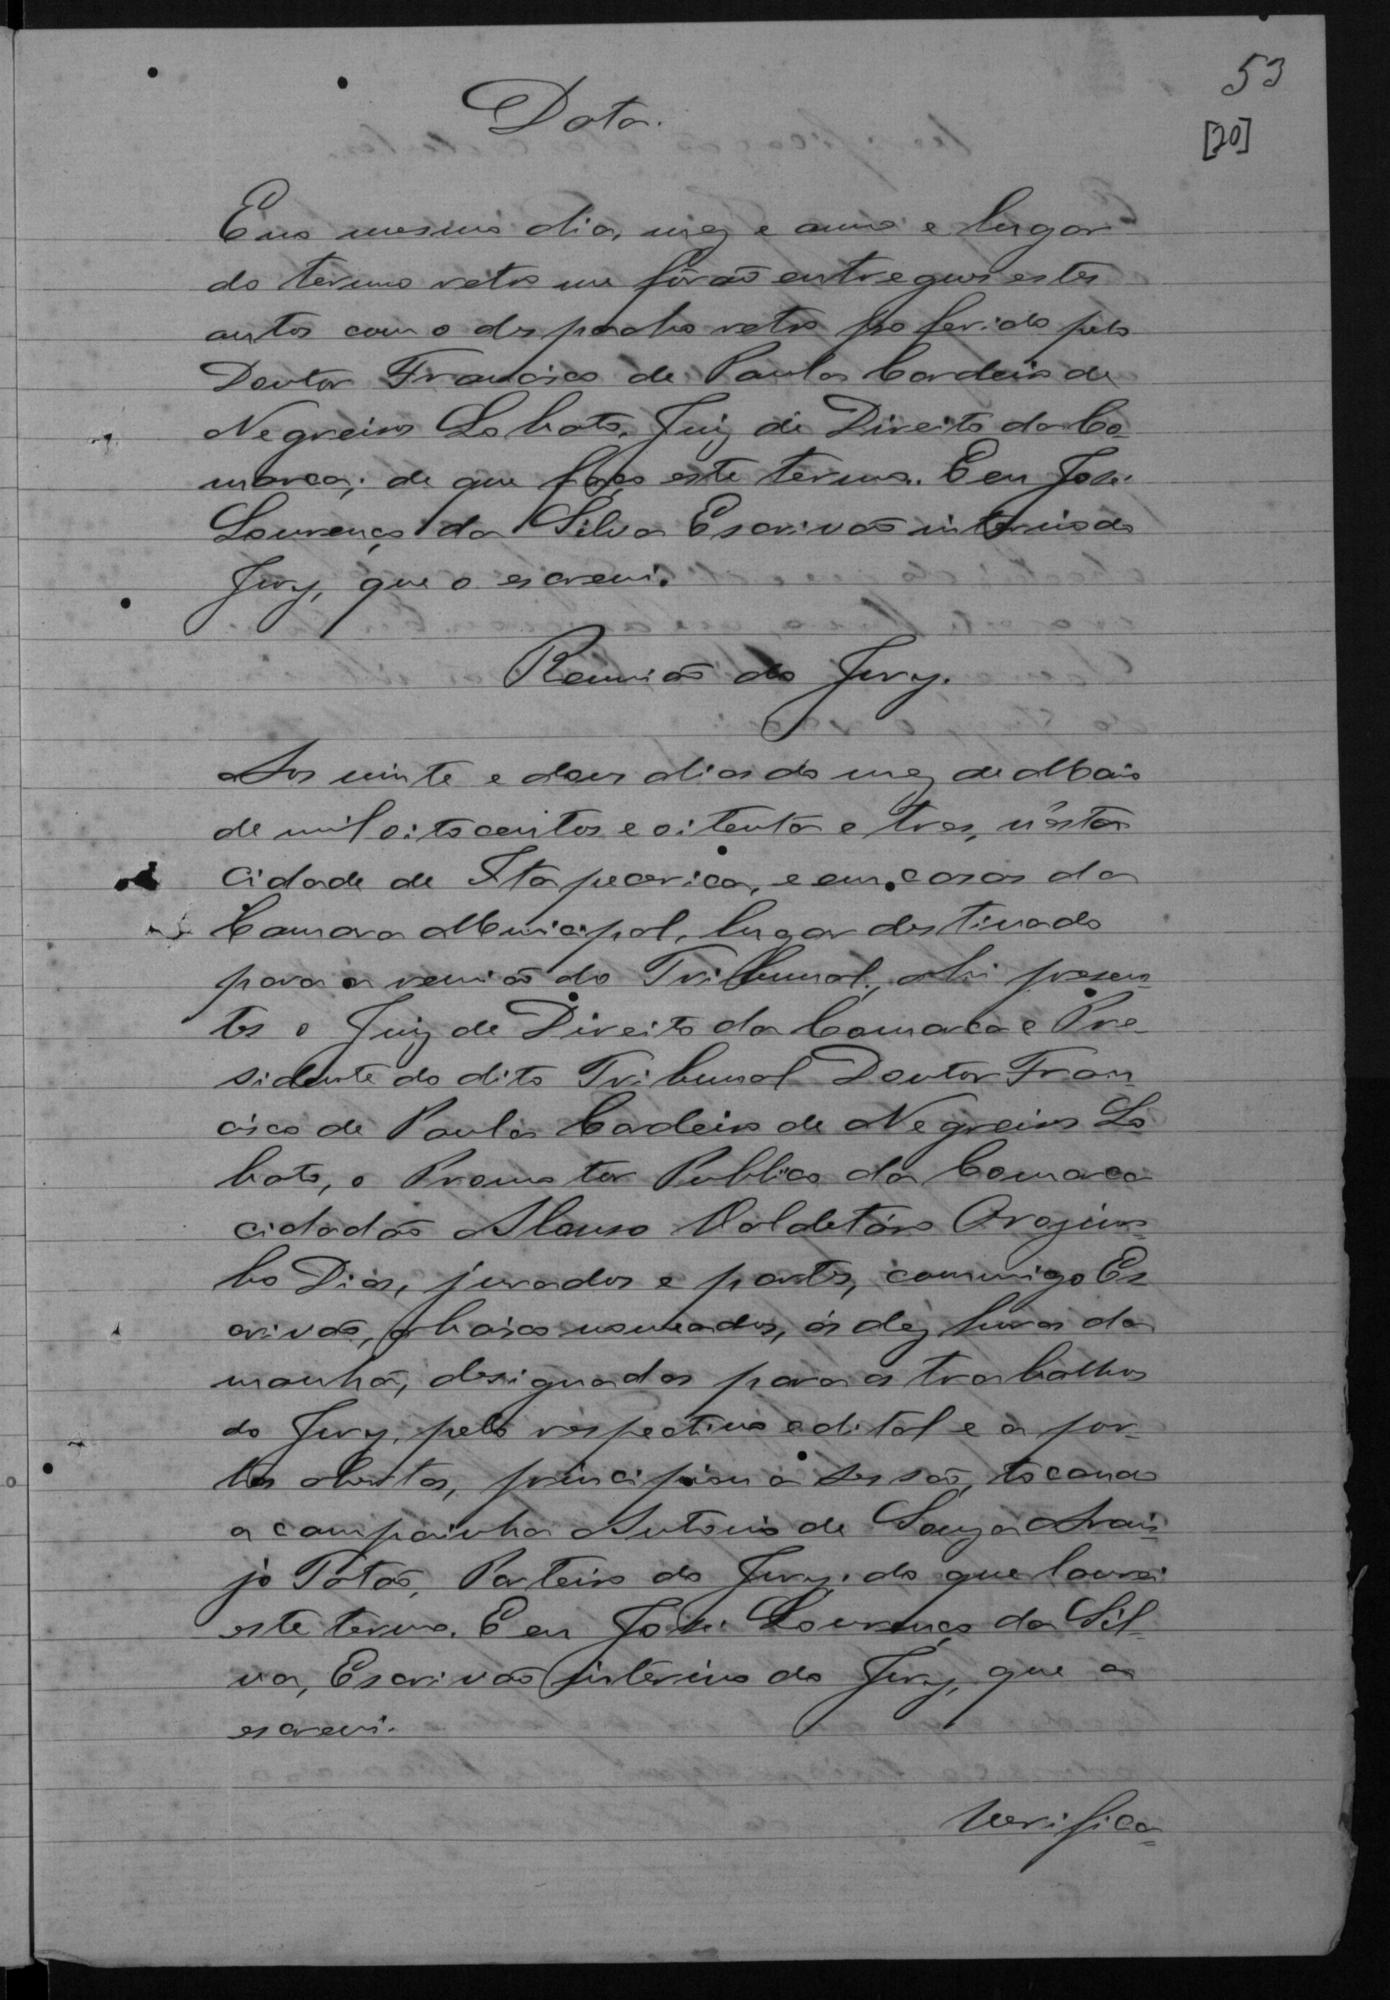 53
[20]
Data.
E no mesmo dia, mez e anno e lugar
do termo retro me fôrão entregues estes
autos com o despacho retro proferido pelo
Doutor Francisco de Paula Cordeiro de
Negreiros Lobato, Juiz de Direito da Co-
marca; de que faço este termo. E eu José
Lourenço da Silva Escrivão interino do
Jury, que o escrevi.
Reunião do Jury.
Aos vinte e dous dias do mez de Maio
de mil oitocentos e oitenta e tres, n'ésta
Cidade de Itapecerica, e em casas da
Camara Municipal, lugar destinado
para a reunião do Tribunal, ahi presen-
tes o Juiz de Direito da Comarca e Pre-
sidente do dito Tribunal Doutor Fran-
cisco de Paula Cordeiro de Negreiros Lo
bato, o Promotor Publico da Comarca
cidadão Afonso
ho Dias, jurados e partes, commigo Es
crivão, abaixo nomeados, ás dez horas da
manhã, designadas para os trabalhos
do Jury, pelo respectivo edital e a por-
tas abertas, principiou a sessão, tocando
a campainha Antonio de Souza Arau-
jo Totão, Porteiro do Jury; do que lavrei
este termo. E eu José Lourenço da Sil-
va, Escrivão interino do Jury, que o
escrevi.
Verifica=